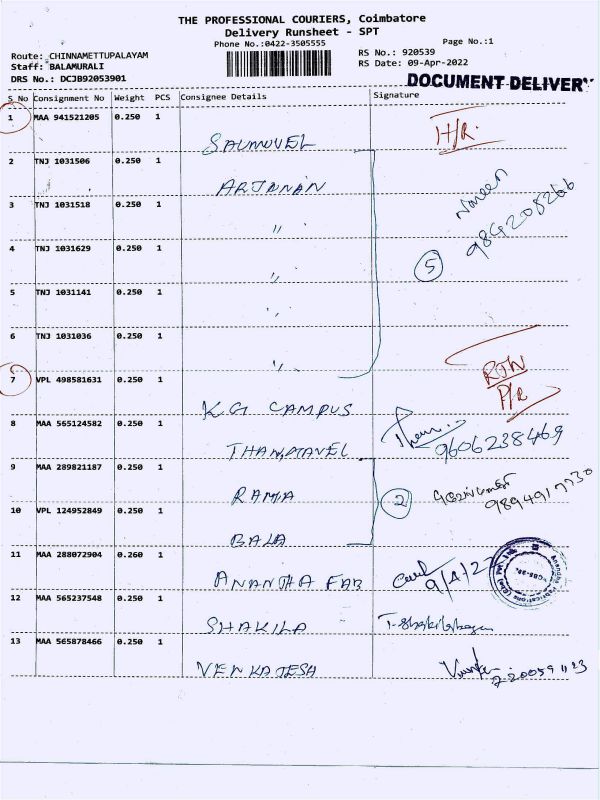 THE PROFESSIONAL COURIERS, Coimbatore
Delivery Runsheet - SPT
Phone No.:0422-3505555
Page No.:1
Route: CHINNAMETTUPALAYAM
RS No.: 920539
Staff: BALAMURALI
RS Date: 09-Apr-2022
DRS No.: DCJB92053901
DOCUMENT DELIVERY
S No Consignment No Weight PCS Consignee Details Signature
1 MAA 941521205 0.250 1
SAUMUVEL
2 TNJ 1031506 0.250 1
ARJANAN
3 TNJ 1031518 0.250 1
"
Naveen
984208266
4 TNJ 1031629 0.250 1
"
5
5 TNJ 1031141 0.250 1
"
6 TNJ 1031036 0.250 1
"
7 VPL 498581631 0.250 1
KG CAMPUS
RTN
P/R
8 MAA 565124582 0.250 1
9606238469
9 MAA 289821187 0.250 1
RAMA
2
10 VPL 124952849 0.250 1
BALA
11 MAA 288072904 0.260 1
ANANTHA FAB
9/4/22
12 MAA 565237548 0.250 1
SHAKILA
13 MAA 565878466 0.250 1
VENKATESH